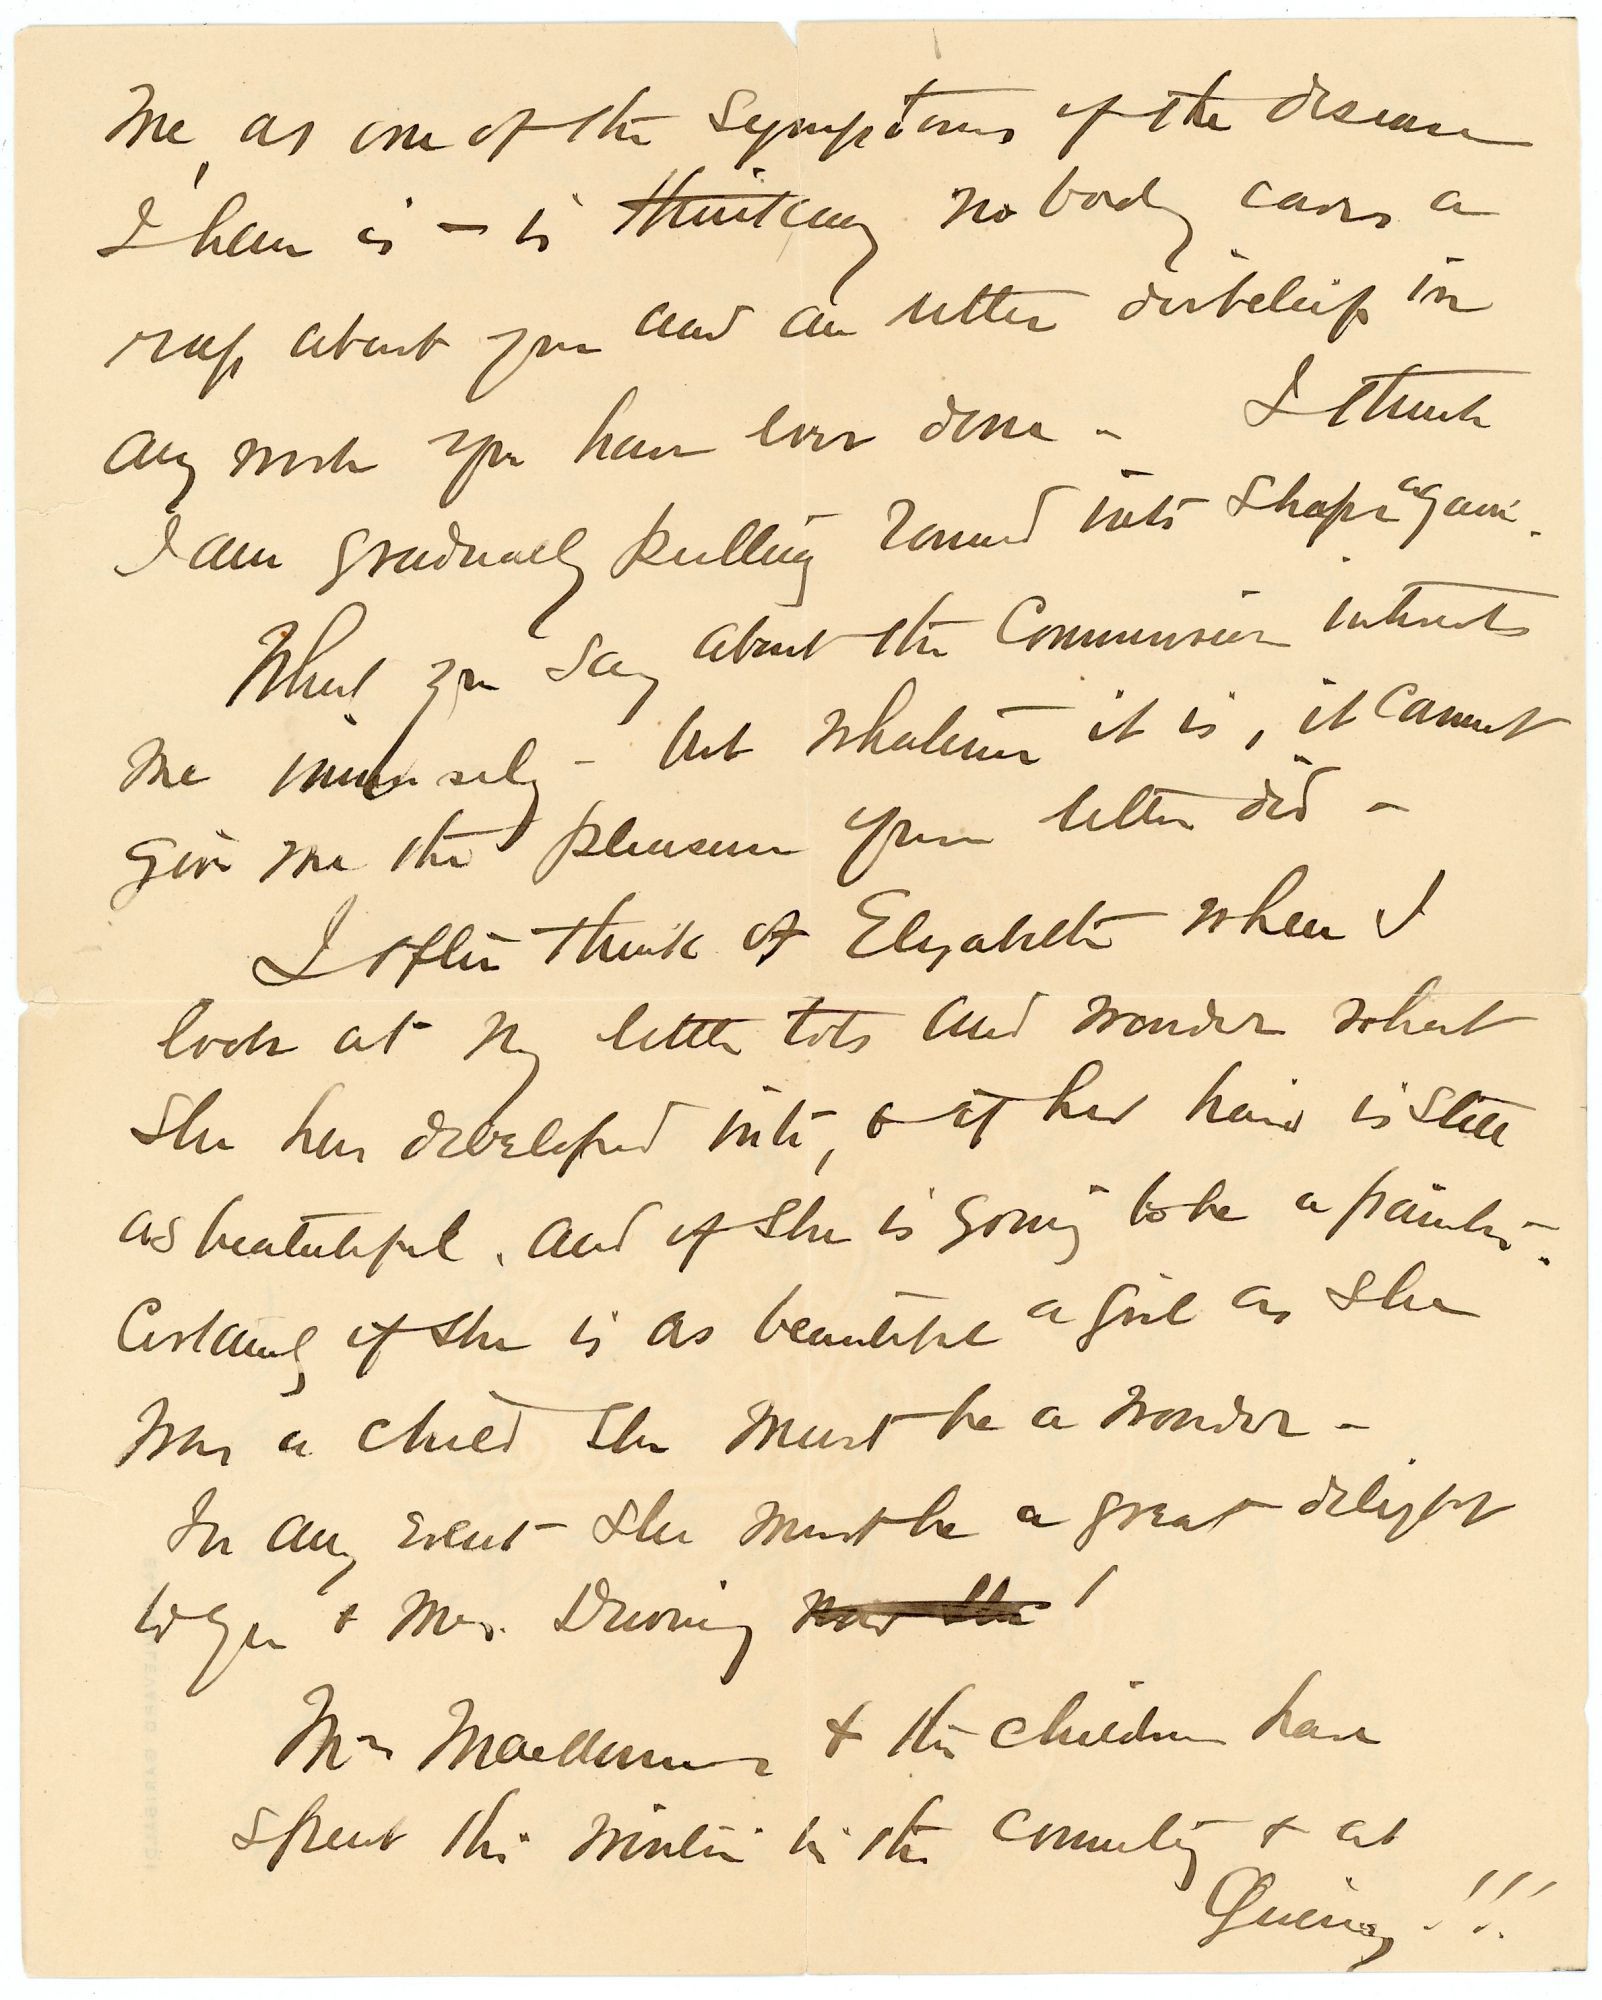 me, as one of the symptoms of the disease
I have is - is thinking nobody cares a
rap about you and an utter disbelief in
any work you have ever done - I think
I am gradually pulling round into shape again.
What you say about the Commission interests
me immensely - but whatever it is, it cannot
give me the pleasure your letter did -
I often think of Elizabeth when I
look at my little tots and wonder what
she has developed into, & if her hair is still
as beatutiful. and if she is going to be a painter.
Certainly if she is as beautiful a girl as she
was a child she must be a wonder -
In any event she must be a great delight
to you & Mrs. Dewing now she!
Mrs MacMonnies & the children have
spent this winter in the country & at
Giverny!!!